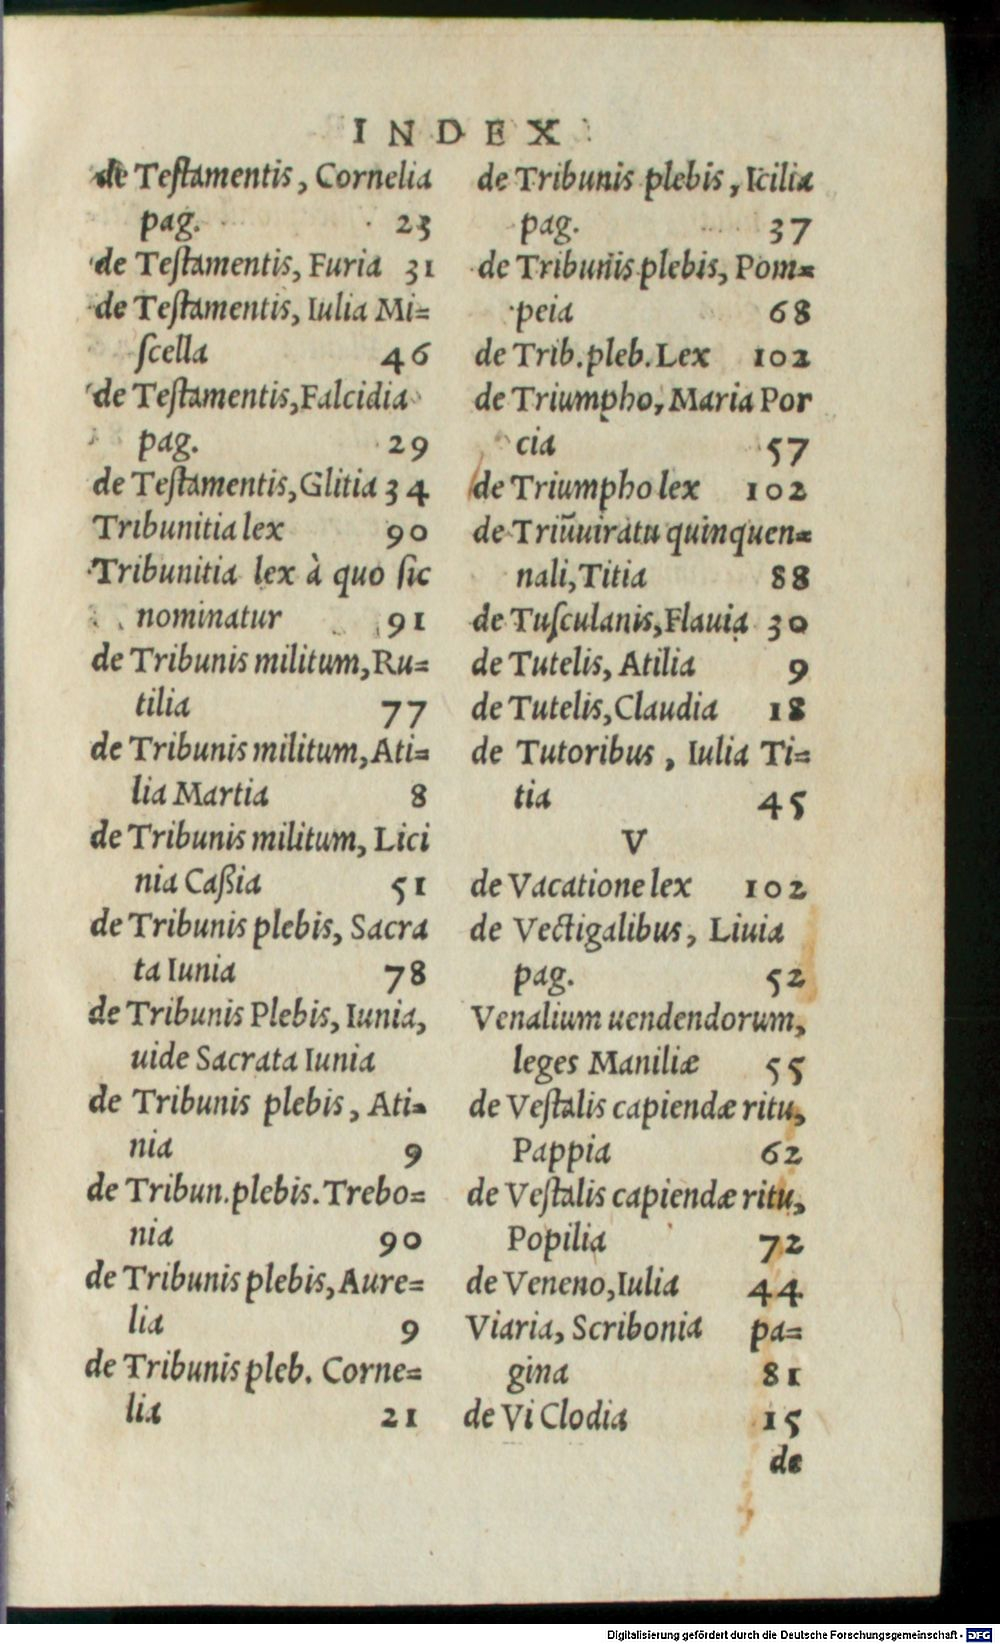 INDEX
de Teſtamentis, Cornelia
pag. 23
de Teſtamentis, Furia 31
de Teſtamentis, Iulia Mi=
ſcella 46
de Teſtamentis, Falcidia
pag. 29
de Teſtamentis, Glitia 34
Tribunitia lex 90
Tribunitia lex à quo ſic
nominatur 91
de Tribunis militum, Ru=
tilia 77
de Tribunis militum, Ati=
lia Martia 8
de Tribunis militum, Lici
nia Caßia 51
de Tribunis plebis, Sacra
ta Iunia 78
de Tribunis Plebis, Iunia,
uide Sacrata Iunia
de Tribunis plebis, Ati=
nia 9
de Tribun.plebis. Trebo=
nia 90
de Tribunis plebis, Aure=
lia 9
de Tribunis pleb. Corne=
lia 21
de Tribunis plebis, Icilia
pag. 37
de Tribunis plebis, Pom=
peia 68
de Trib.pleb. Lex 102
de Triumpho, Maria Por
cia 57
de Triumpho lex 102
de Triūuiratu quinquen=
nali, Titia 88
de Tuſculanis, Flauia 30
de Tutelis, Atilia 9
de Tutelis, Claudia 18
de Tutoribus, Iulia Ti=
tia 45
V
de Vacatione lex 102
de Vectigalibus, Liuia
pag. 52
Venalium uendendorum,
leges Maniliæ 55
de Veſtalis capiendæ ritu,
Pappia 62
de Veſtalis capiendæ ritu,
Popilia 72
de Veneno, Iulia 44
Viaria, Scribonia pa=
gina 81
de Vi Clodia 15
de
Digitalisierung gefördert durch die Deutsche Forschungsgemeinschaft - DFG